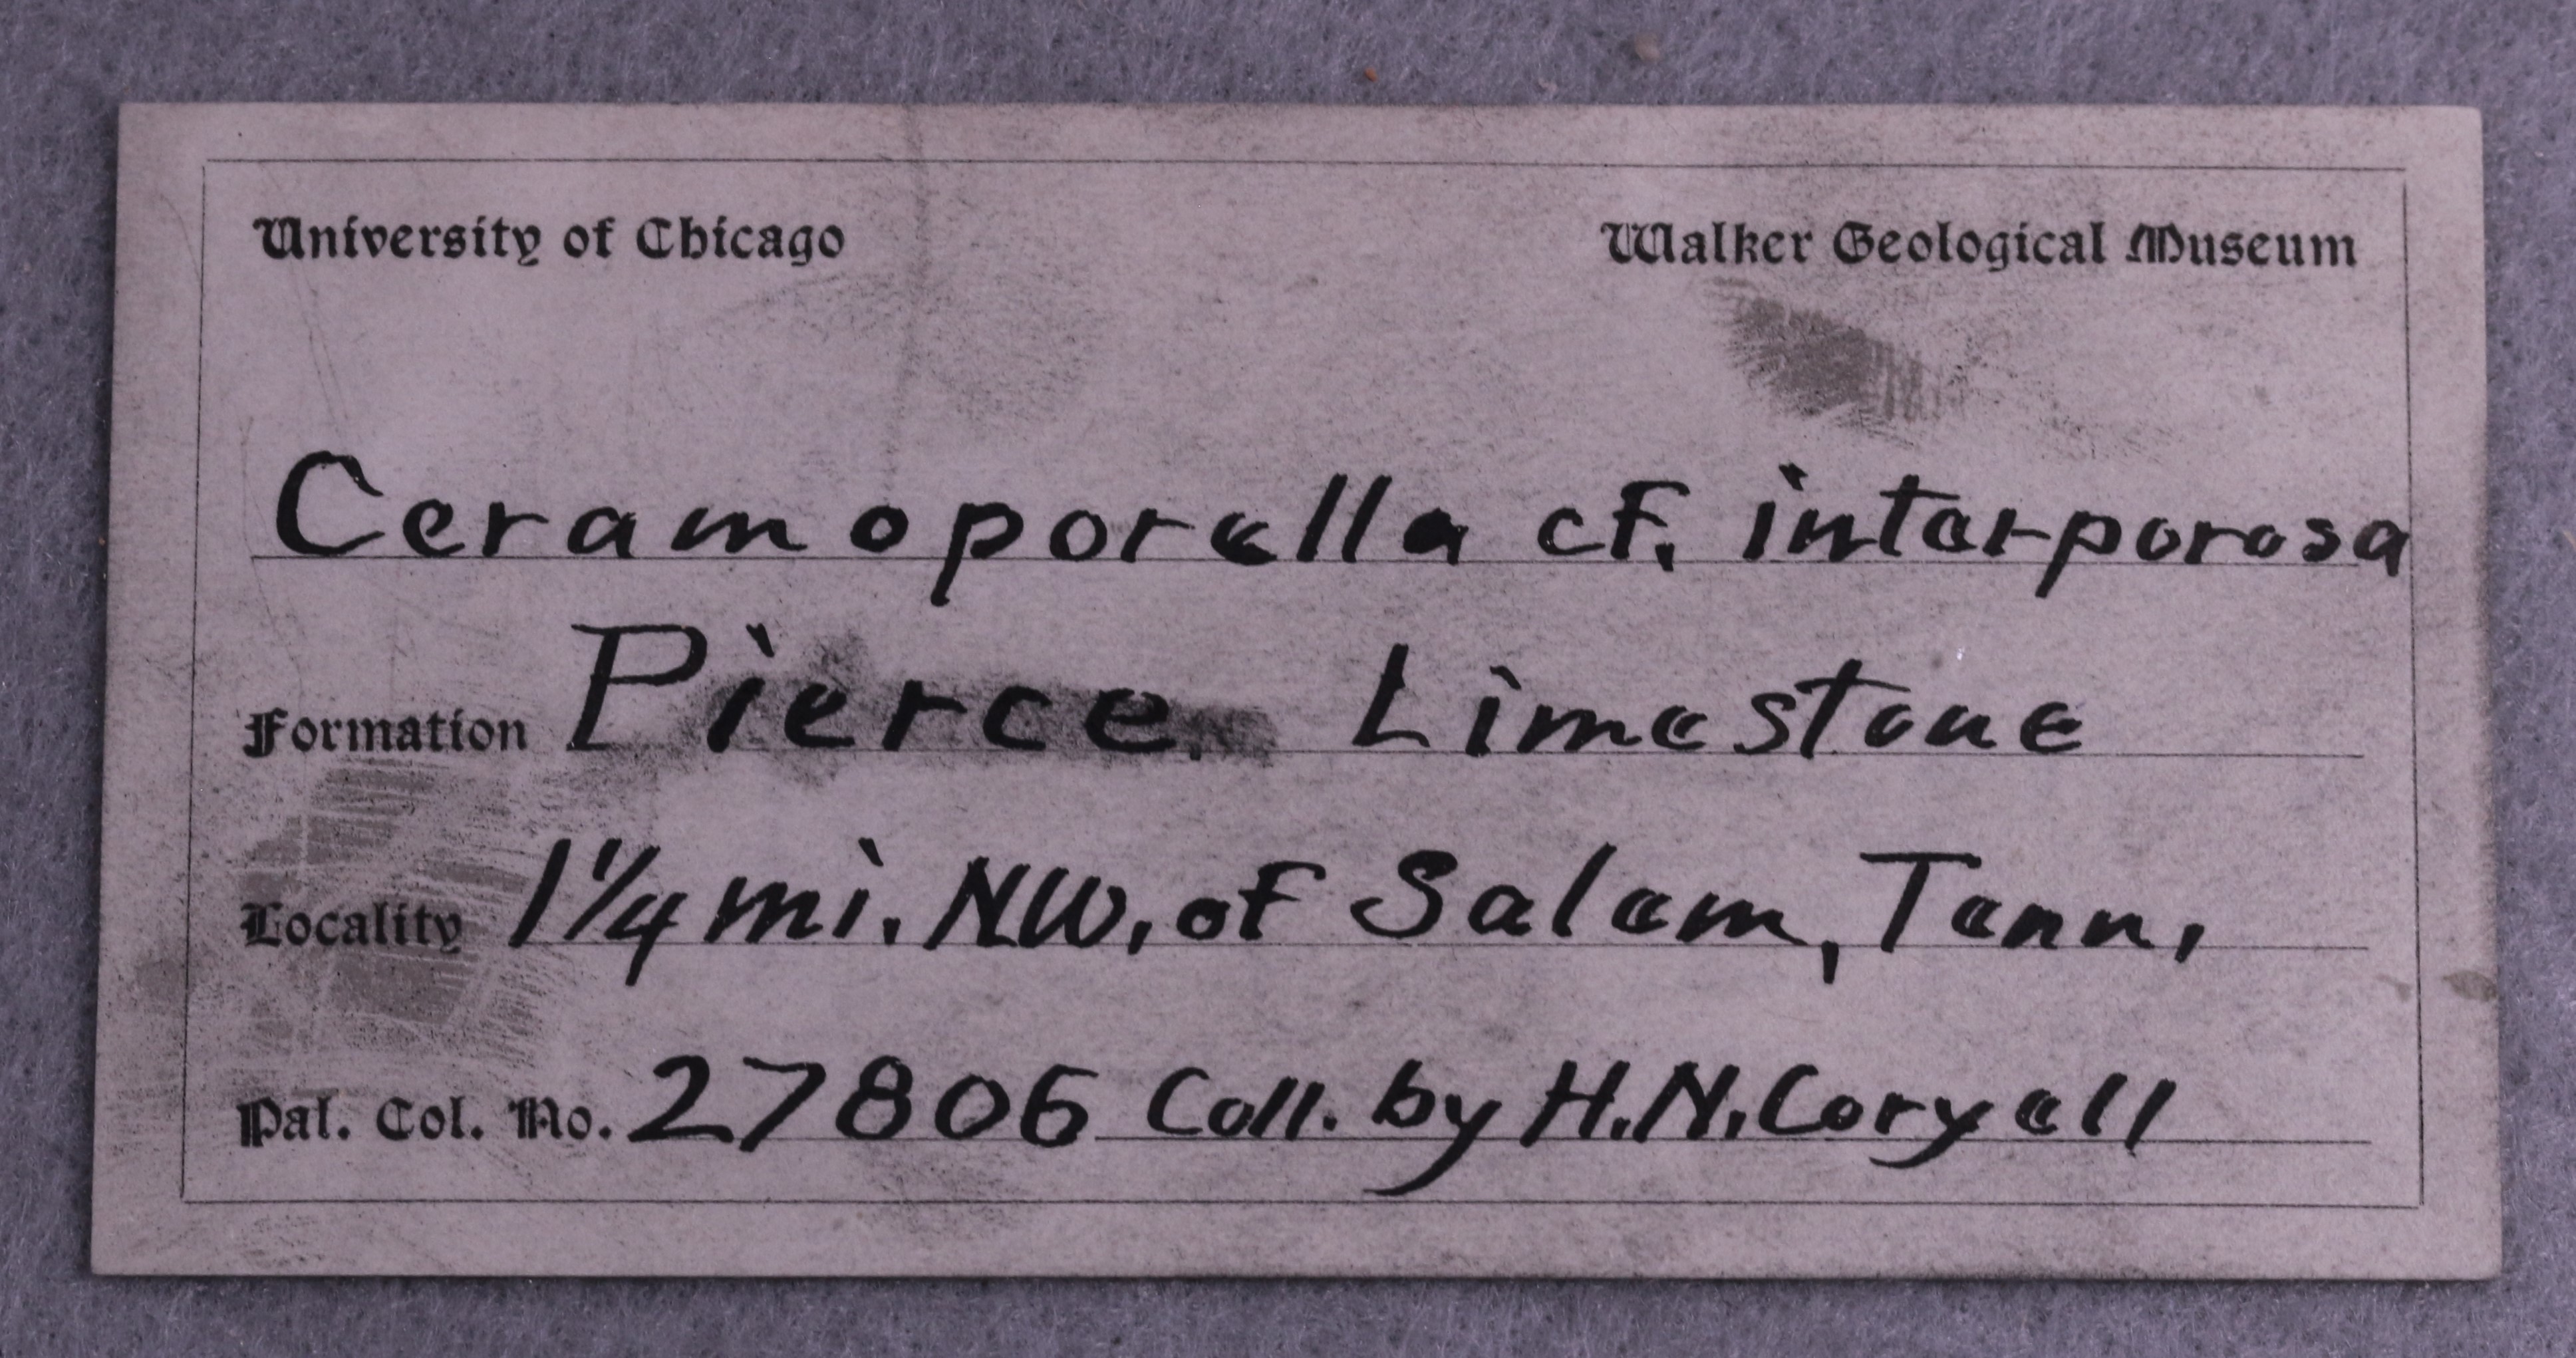 University of Chicago Walker Geological Museum
Ceramoporella cf. interporosa
Formation Pierce Limestone
Locality 1 1/4 mi. NW. of Salem, Tenn.
Pal. Col. No. 27806 Coll. by H.N. Coryell